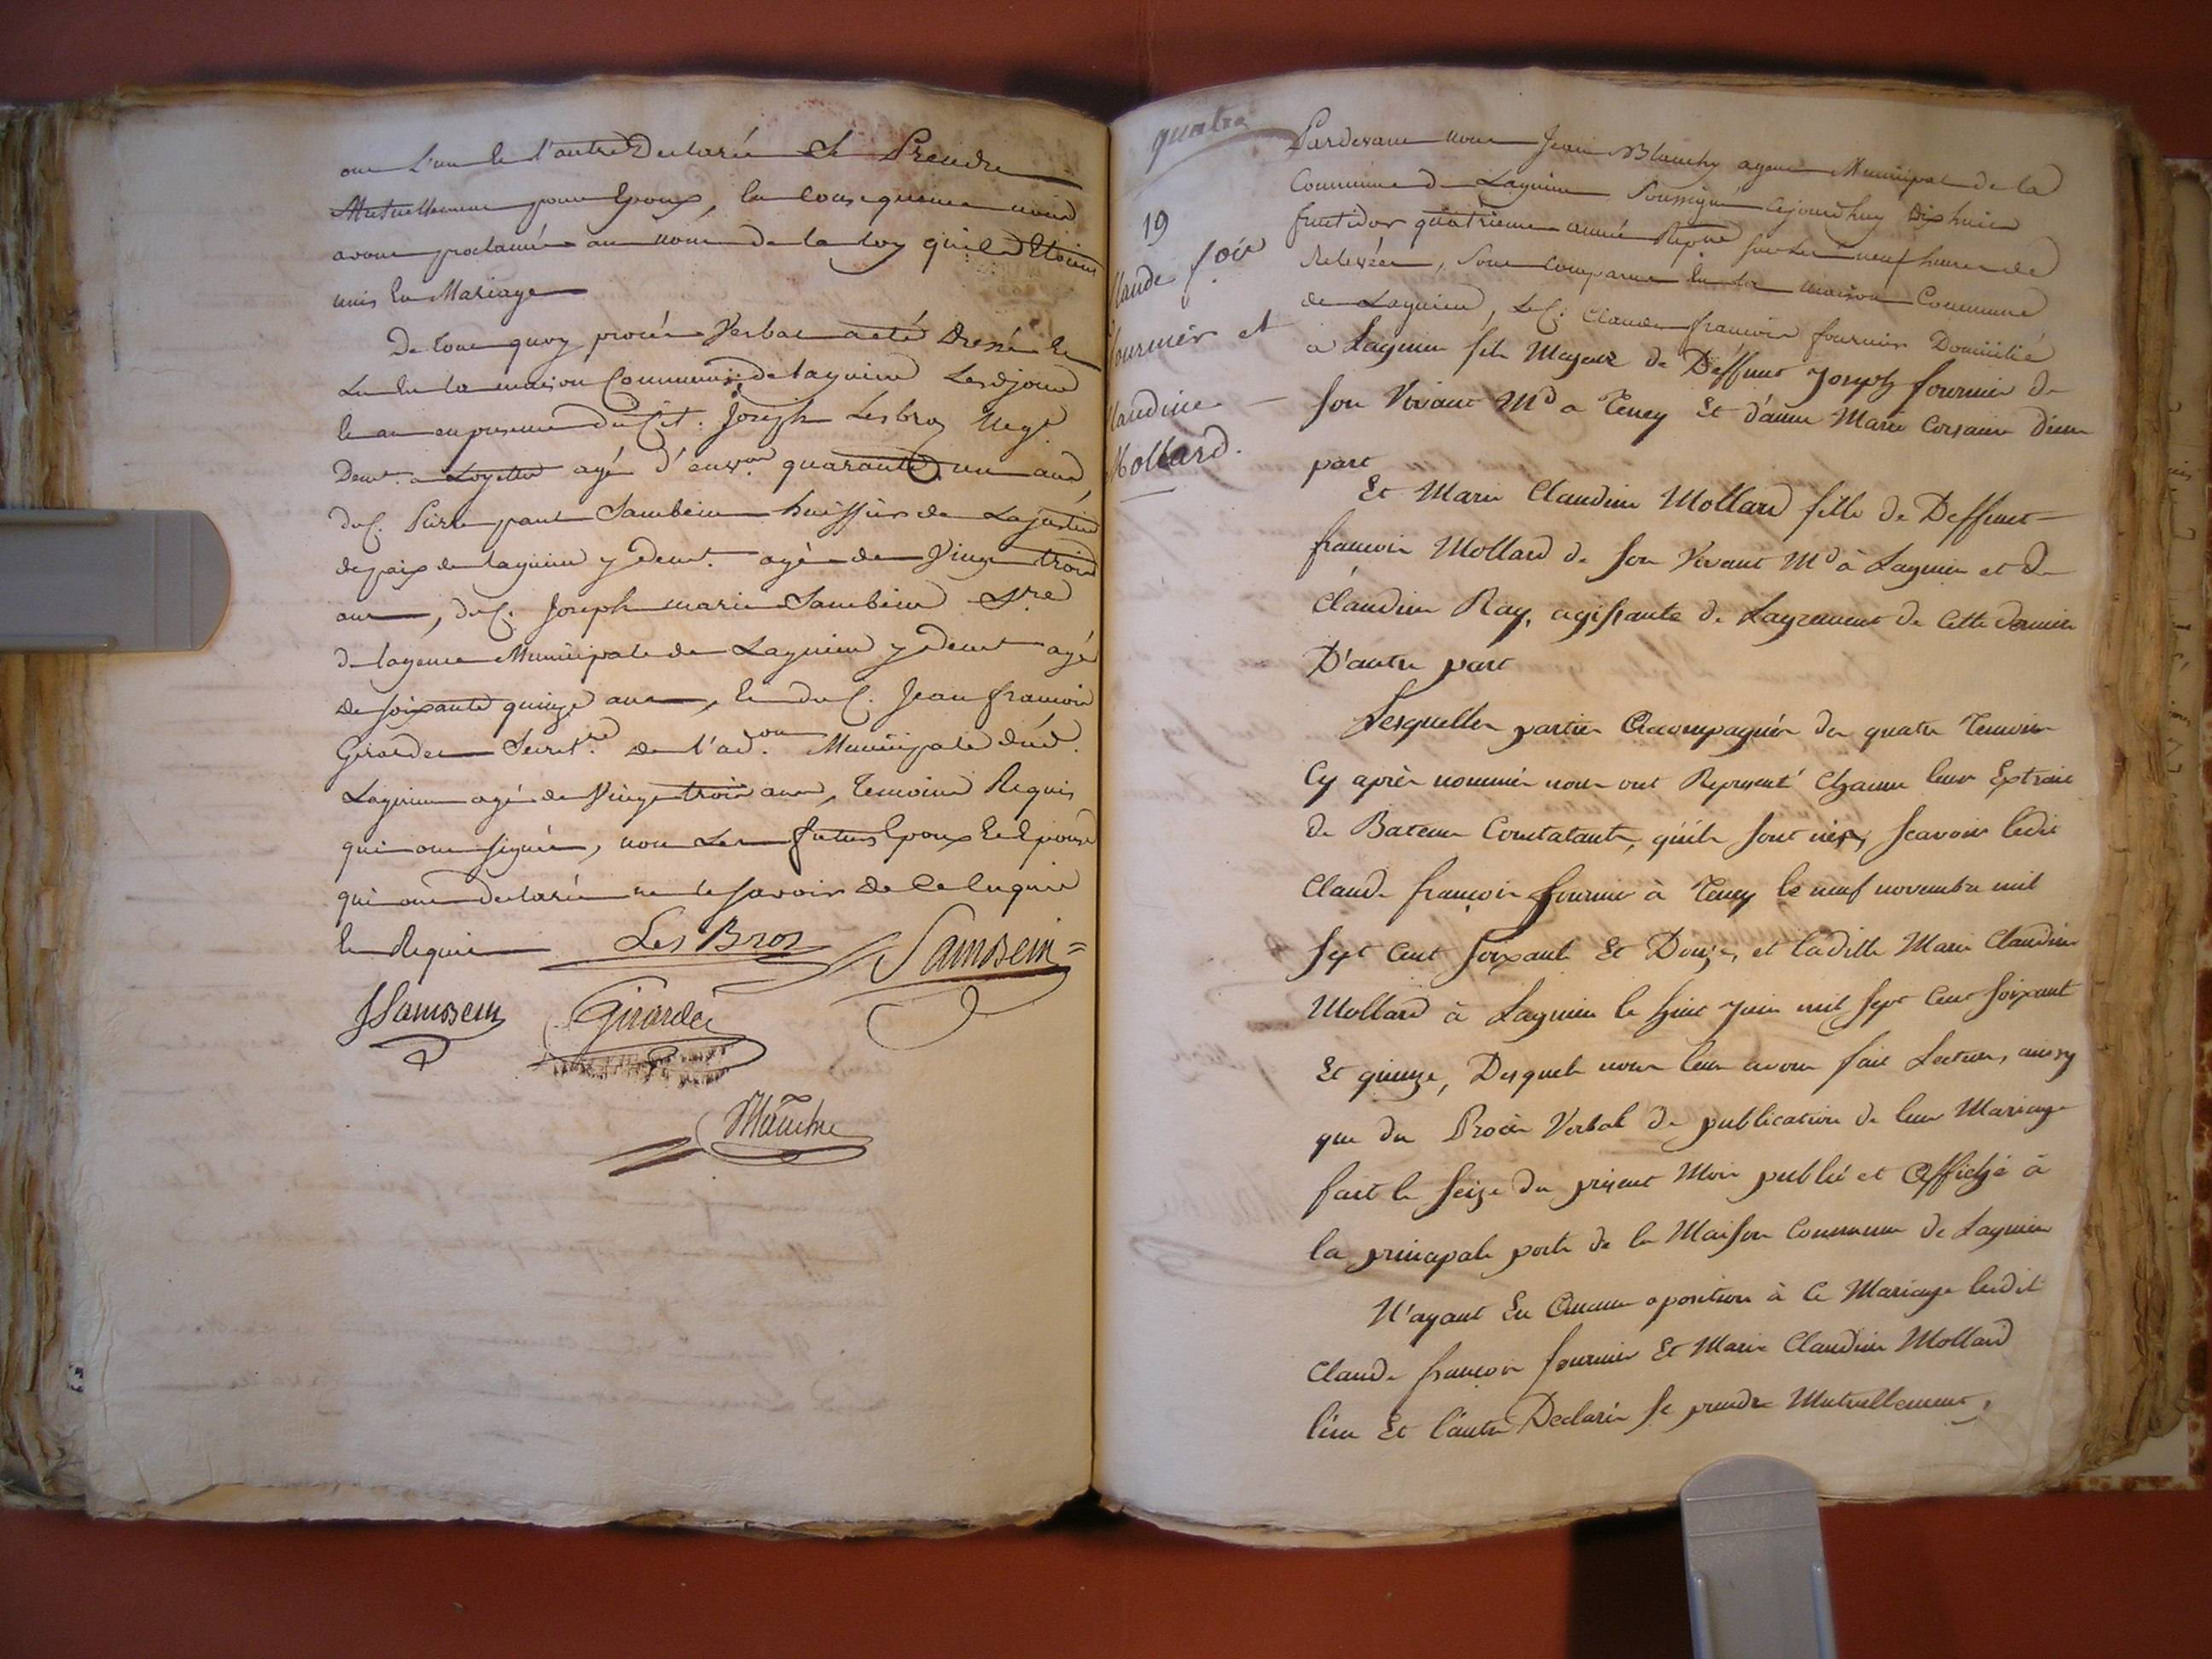 ont L'un et l'autre Declaré Se Prendre
Mutuellement pour Epoux, En Consequence nous
avons proclamé au nom de la Loy quils Etoient
unis En Mariage
De tout quoy procès Verbal a eté Dressé et
Lu En la maison Commune de Lagnieu Lesd jour
et an en presence du Cit. Joseph Lesbros Negt
Demt a Loyettes agé d'environ quarante un ans,
du C. Pierre paul Sambein huissier de La justice
de paix de Lagnieu y demt. agé de Vingt trois
ans, du C. Joseph marie Sambein Sre
de lagence Municipale de Lagnieu y demt agé
de soixante quinze ans, Et du C. Jean francois
Girardet Secret.re de l'ad.on Municipale dud.
Lagnieu agé de Vingt trois ans, Temoins Requis
qui ont signés, non Les futurs Epoux Et Epouse
qui ont declaré ne le savoir de ce Enquis
Et Requis Les Bros Sambein
JSambein Girardet
Blanchy
quatre
19
Claude foit
fournier et
Claudine
Mollard.
Pardevant nous Jean Blanchy agent Municipal de la
Commune de Lagnieu Soussigné Cejourdhuy Dix huit
fructidor quatrieme année Repne sur Les neuf heures de
Relevée, Sont comparu En la maison Commune
de Lagnieu, Le C. Claude francois fournier Domicilié
a Lagnieu fils Majeur de Deffunt Joseph fournier de
son Vivant Md a Teney Et d'anne Marie Corsain D'une
part
Et Marie Claudine Mollard fille de Deffunt
francois Mollard de son Vivant Md à Lagnieu et de
Claudine Ray, agissante de Lagrement de Cette derniere
D'autre part
Lesquelles parties Accompagnés des quatre Temoins
Cy après nommés nous ont Representé Chacun leur Extrait
de Bateme Constatants, qu'ils sont nés, scavoir ledit
Claude francois fournier à Teney le neuf novembre mil
sept Cent soixante Et Douze, et ladille Marie Claudine
Mollard à Lagnieu le huit Juin mil sept Cent soixante
Et quinze, Desquels nous leur avons fait Lecture, ainsy
que du Procès Verbal de publication de leur Mariage
fait le seize du présent Mois publié et Affiché à
la principale porte de la Maison Commune de Lagnieu
N'ayant Eu Aucune oposition à Ce Mariage lesdit
Claude francois fournier Et Marie Claudine Mollard
l'un Et l'autre Declarés se prendre Mutuellement,